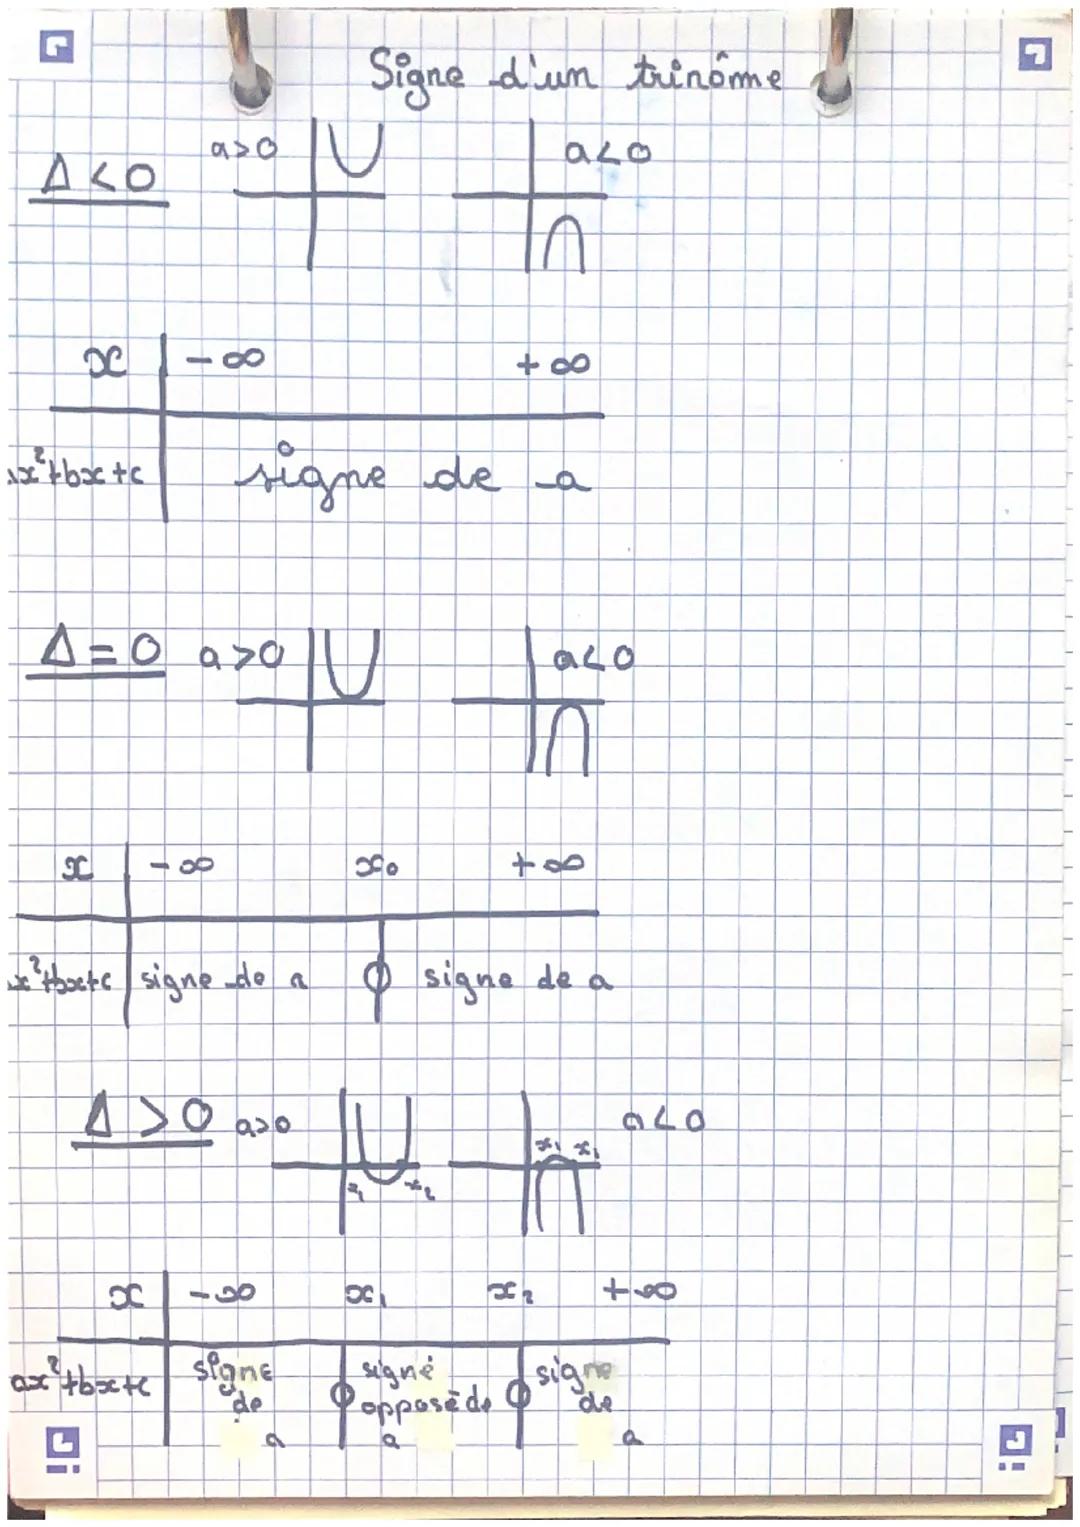 Signe d'un trinôme
Δ<0 a>0 a<0
x -∞ +∞
ax²+bx+c signe de a
Δ=0 a>0 a<0
x -∞ x₀ +∞
ax²+bx+c signe de a 0 signe de a
Δ>0 a>0 a<0
x₁ x₁
x₁ x₂
x -∞ x₁ x₂ +∞
ax²+bx+c signe de a 0 signe opposé de a 0 signe de a